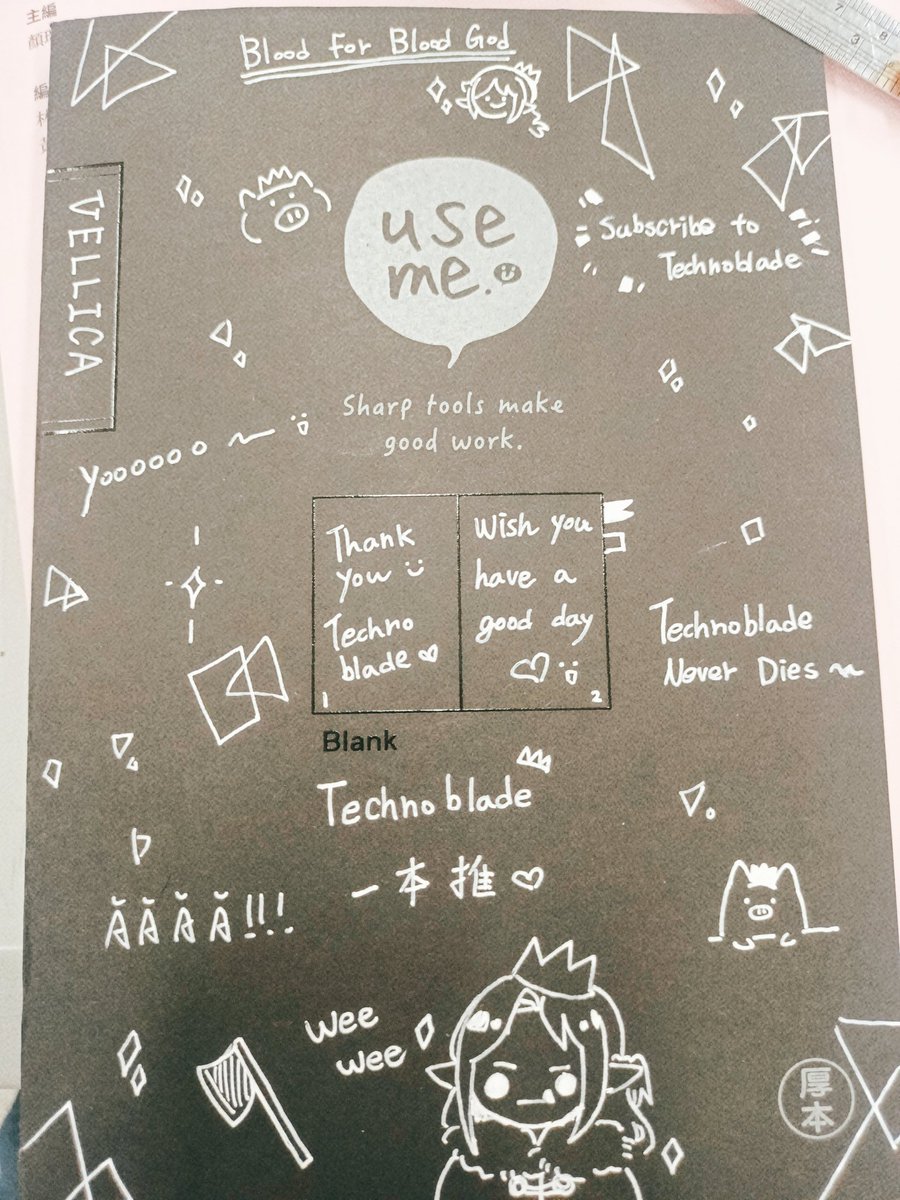 主編
Blood For Blood God
VELLICA
use
me.
Subscribe to
Technoblade
Sharp tools make
good work.
Yoooooo~
Thank
you
Techno
blade
1
Wish you
have a
good day
2
Technoblade
Never Dies~
Blank
Technoblade
一本推
ĂĂĂĂ!!!
wee
wee
厚
本
7
8
3